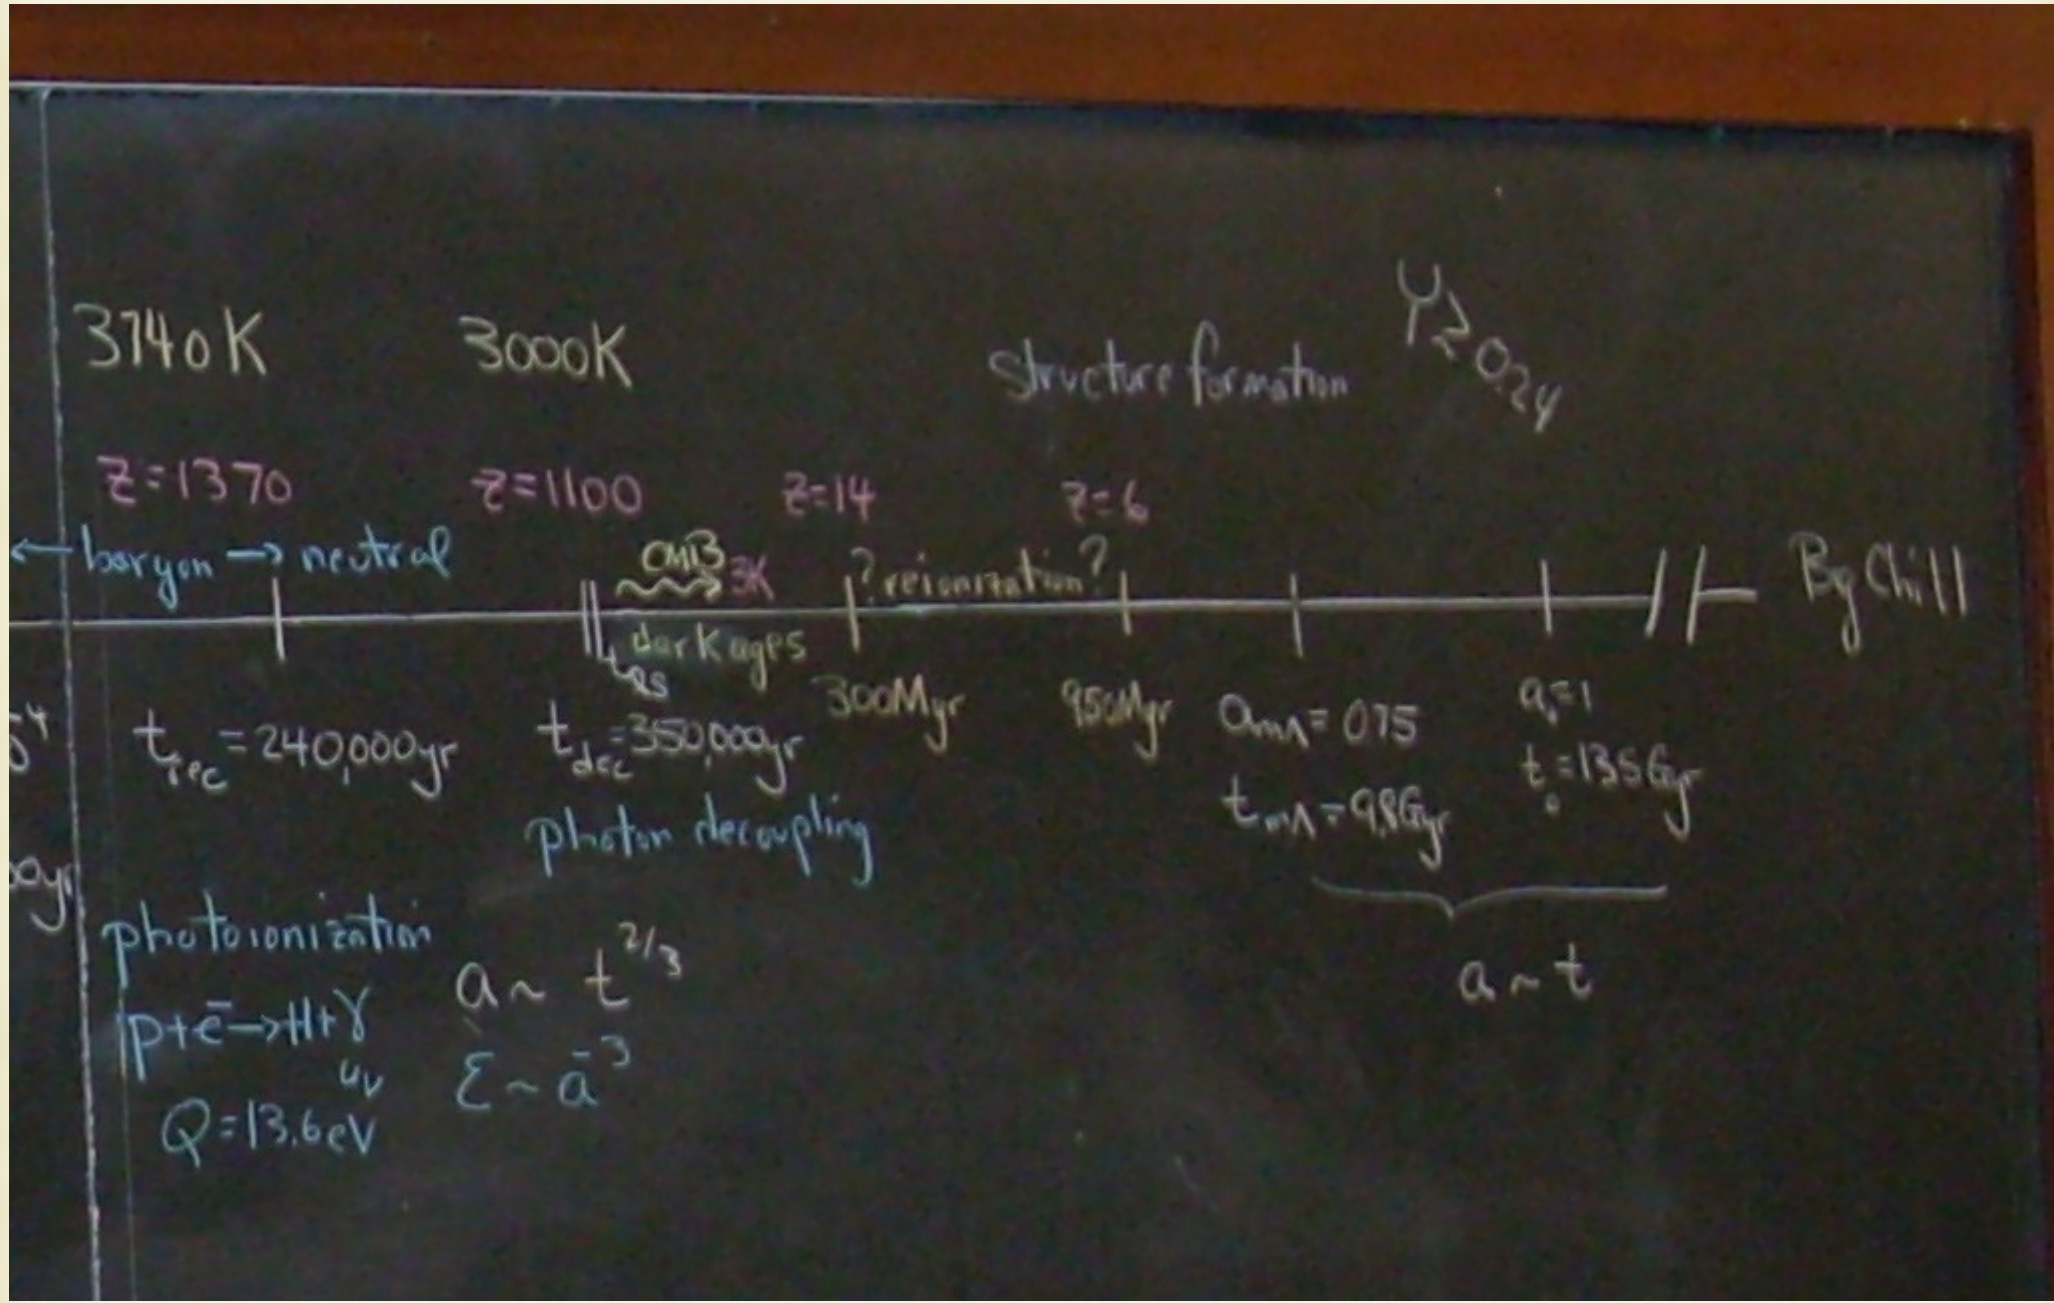 3740K 3000K
Structure formation
Y≥0.24
z=1370 z=1100 z=14 z=6
← baryon → neutral
CMB 3K
?reionization?
Big Chill
dark ages
300Myr 950Myr
t_rec = 240,000yr
t_dec = 350,000yr
a_mΛ = 0.75
a₀=1
t_mΛ = 9.8Gyr
t₀ = 13.5Gyr
photon decoupling
photoionization
p+e⁻→H+γ
uv
Q=13.6eV
a ~ t^2/3
ε ~ a^-3
a ~ t